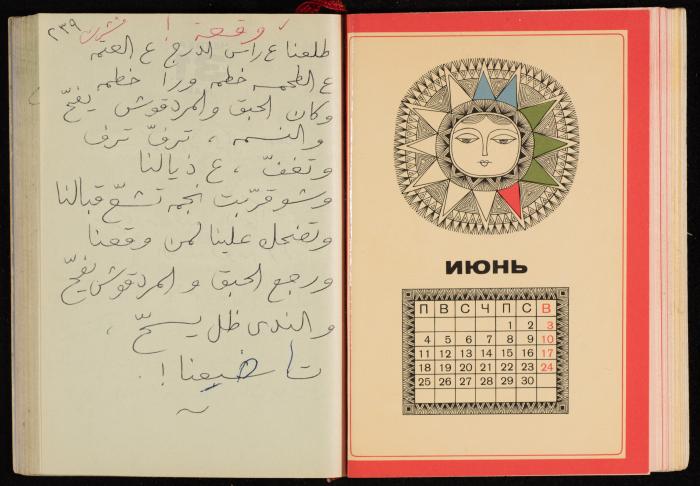 ٢٣٩
وقعة !
نشرت
طلعنا ع راس الدرج ع العتمه
ع الطمسه خطمه ورا خطمه
وكان الحبق والمردقوش يفحّ
والنسمه ، ترفّ ترف
وتغفّ ، ع ذيالنا
وشو قرّبت نجمه تشعّ قبالنا
وتضحك علينا لمن وقعنا
ورجع الحبق والمردقوش يفحّ
والندى ظل يسحّ ،
تا ضيعنا !
ИЮНЬ
П В С Ч П С В
1 2 3
4 5 6 7 8 9 10
11 12 13 14 15 16 17
18 19 20 21 22 23 24
25 26 27 28 29 30